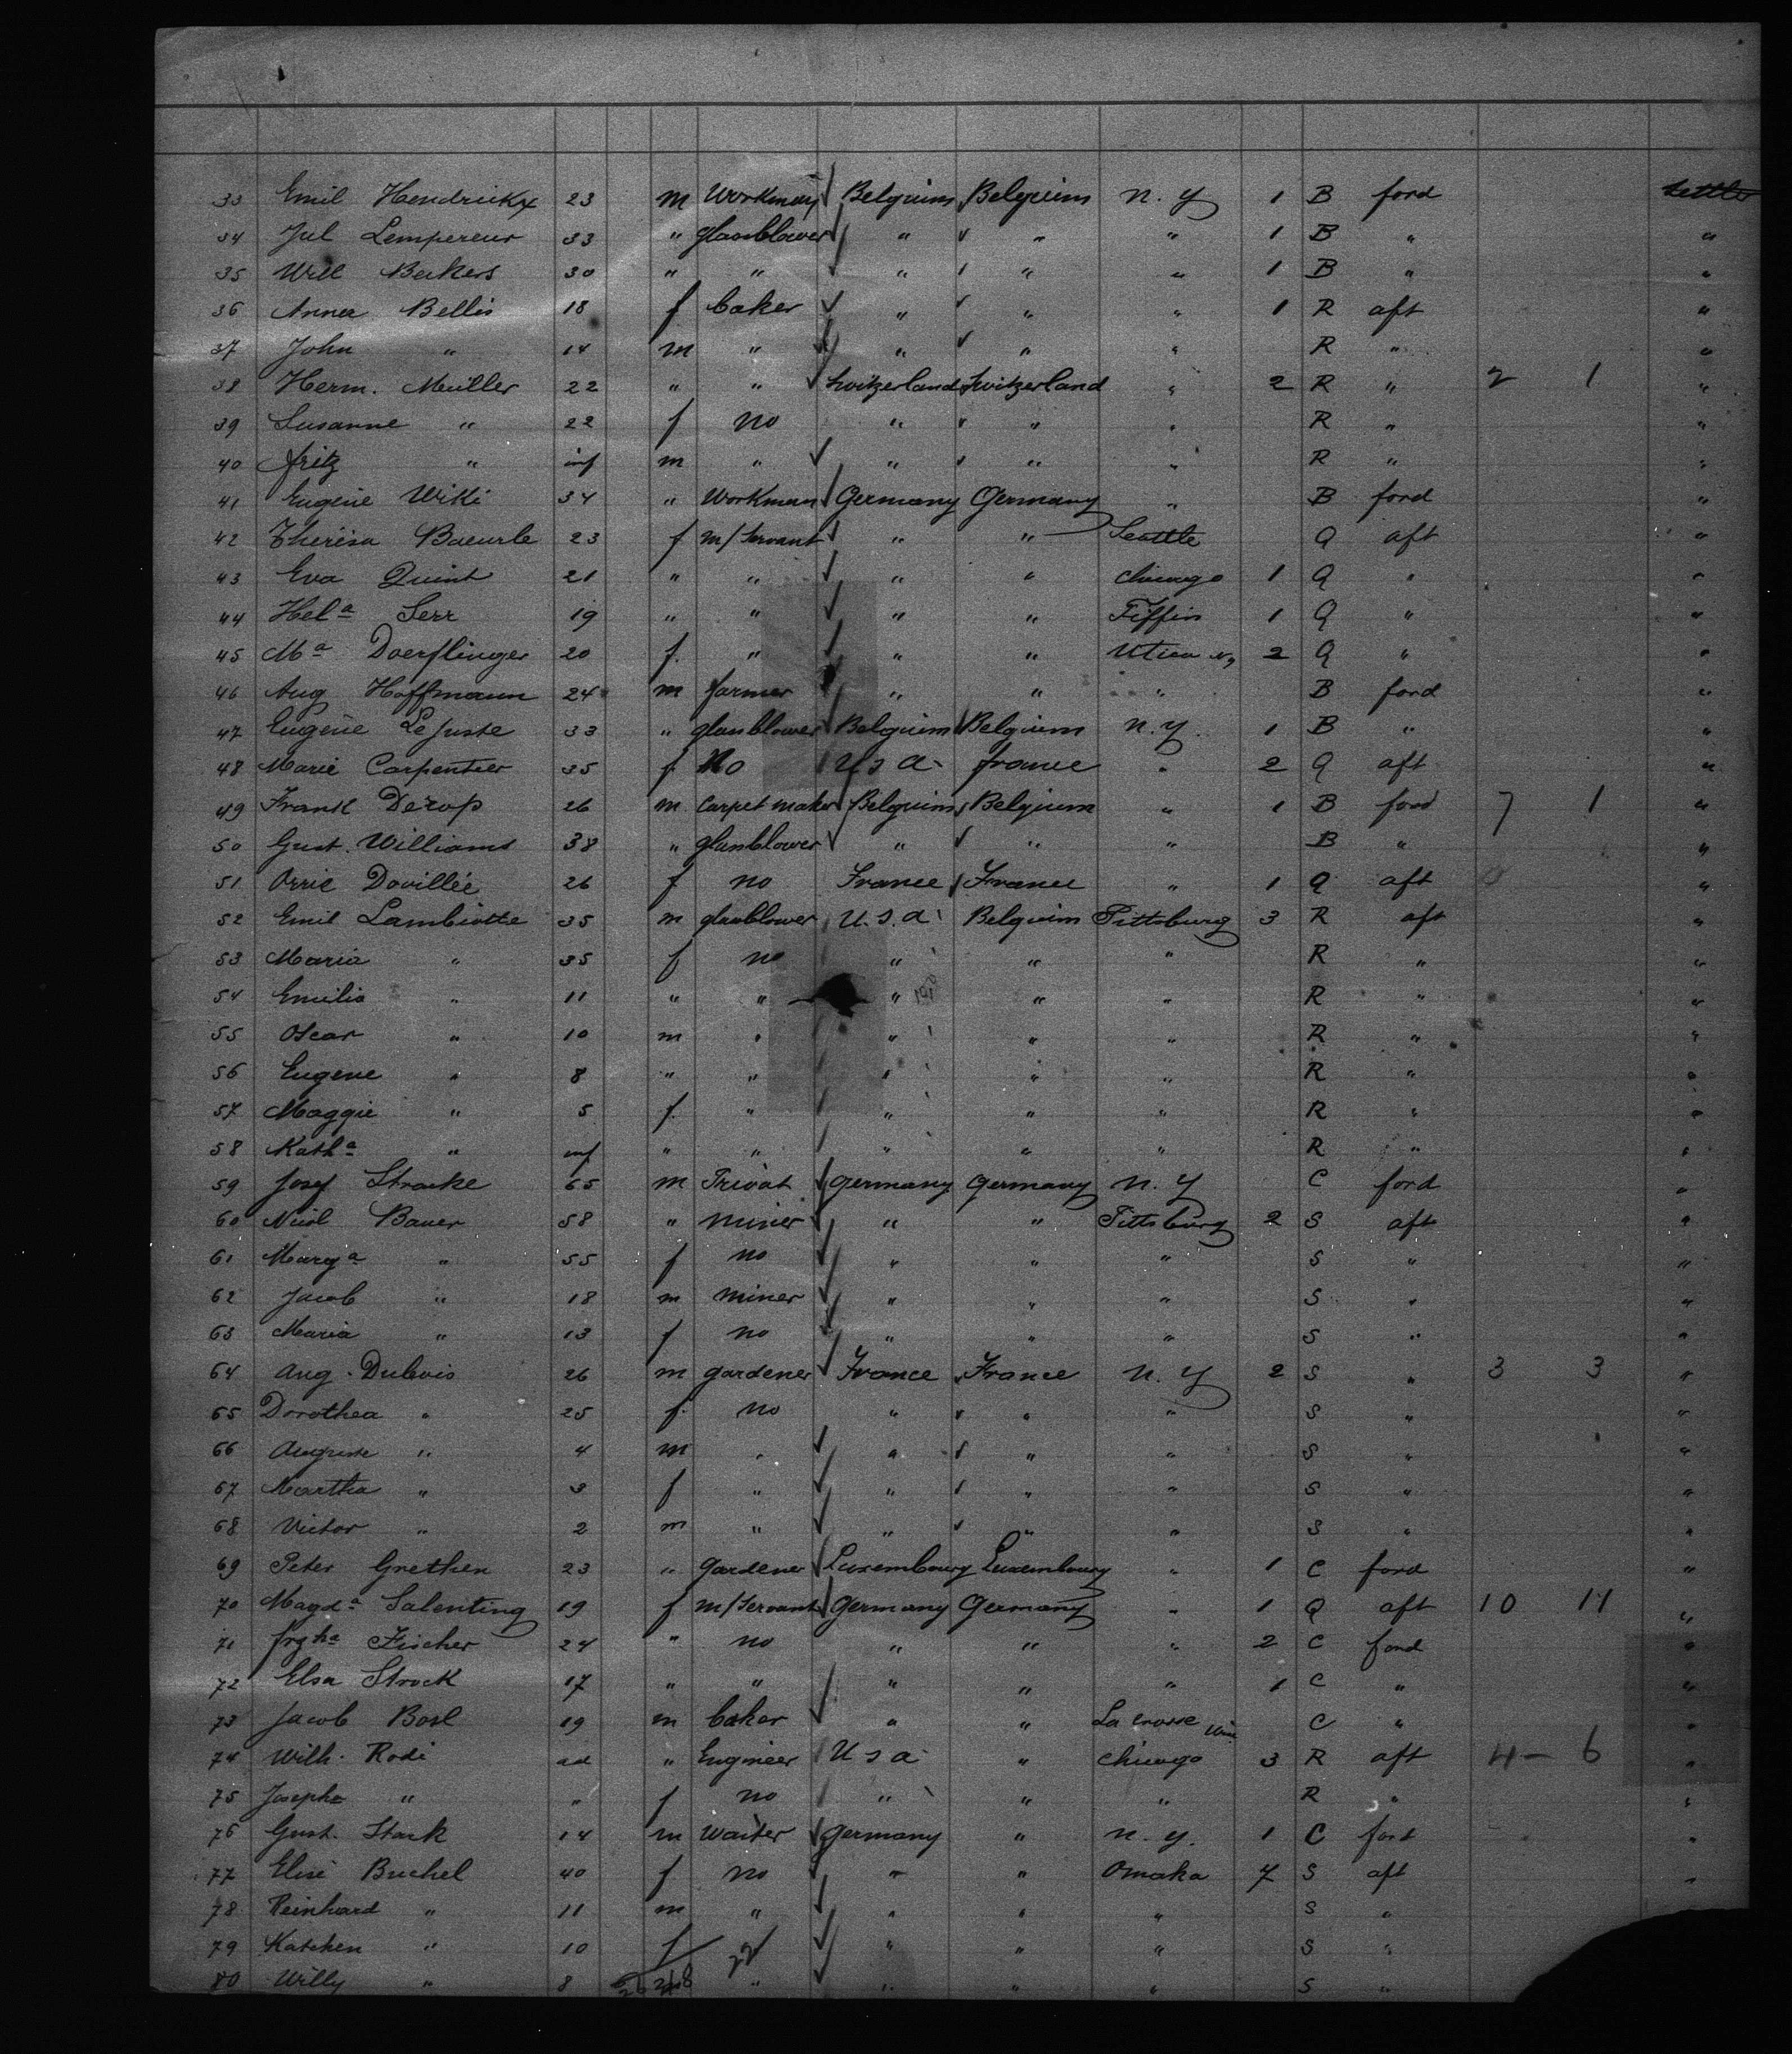 33 Emil Hendrickx 23 m Workman Belguim Belguim N. Y 1 B ford settler
34 Jul Lempereur 33 " glassblower " " " 1 B " "
35 Will Beckers 30 " " " " " 1 B " "
36 Anna Bellis 18 f baker " " " 1 R aft "
37 John " 14 m " " " " R " "
38 Herm. Müller 22 " " Switzerland Switzerland " 2 R " 2 1 "
39 Susanne " 22 f no " " " R " "
40 fritz " inf m " " " " R " "
41 Eugene Wiki 34 " Workman Germany Germany " B ford "
42 Theresa Baeurle 23 f m/Servant " " Seattle Q aft "
43 Eva Quint 21 " " " " chicago 1 Q " "
44 Hela Serr 19 " " " " Tiffin 1 Q " "
45 Ma Doerflinger 20 f. " " " Utica Ny 2 Q " "
46 Aug Hoffmann 24 m farmer " " " B ford "
47 Eugene LeJuste 33 " glassblower Belguim Belguim N. Y. 1 B " "
48 Marie Carpentier 35 f No U S A france " 2 Q aft "
49 Frank Derop 26 m Carpet maker Belguim Belgium " 1 B ford 7 1 "
50 Gust. Williams 38 " glassblower " " " B " "
51 Orrie Dovillée 26 f no France France " 1 Q aft "
52 Emil Lambiotte 35 m glassblower U. S. A Belguim Pittsburg 3 R aft "
53 Maria " 35 f no " " " R " "
54 Emilia " 11 " " " " " R " "
55 Oscar " 10 m " " " " R " "
56 Eugene " 8 " " " " " R " "
57 Maggie " 5 f. " " " " R " "
58 Katha " inf " " " " " R " "
59 Josef Stracke 65 m Privat germany germany N. Y C ford "
60 Nicol Bauer 58 " miner " " Pittsburg 2 S aft "
61 Marga " 55 f no " " " S " "
62 Jacob " 18 m miner " " " S " "
63 Maria " 13 f no " " " S " "
64 Aug. Dubois 26 m gardener France France N. Y 2 S " 3 3 "
65 Dorothea " 25 f. no " " " S " "
66 Auguste " 4 m " " " " S " "
67 Martha " 3 f " " " " S " "
68 Victor " 2 m " " " " S " "
69 Peter Grethen 23 " gardener Luxembourg Luxembourg " 1 C ford "
70 Magda Salenting 19 f m/Servant Germany Germany " 1 Q aft 10 11 "
71 Fischer 24 " no " " " 2 C ford "
72 Elsa Strock 17 " " " " " 1 C " "
73 Jacob Bosl 19 m baker " " La Crosse Wis C " "
74 Wilh. Rodi ad " Engineer U S A " chicago 3 R aft 4 — 6 "
75 Josepha " " f no " " " R " "
76 Gust. Stark 14 m Waiter germany " N. Y. 1 C ford "
77 Elise Buchel 40 f no " " Omaha 7 S aft "
78 Reinhard " 11 m " " " " S "
79 Katchen " 10 f " " " S "
80 Willy " 8 " " " " S "